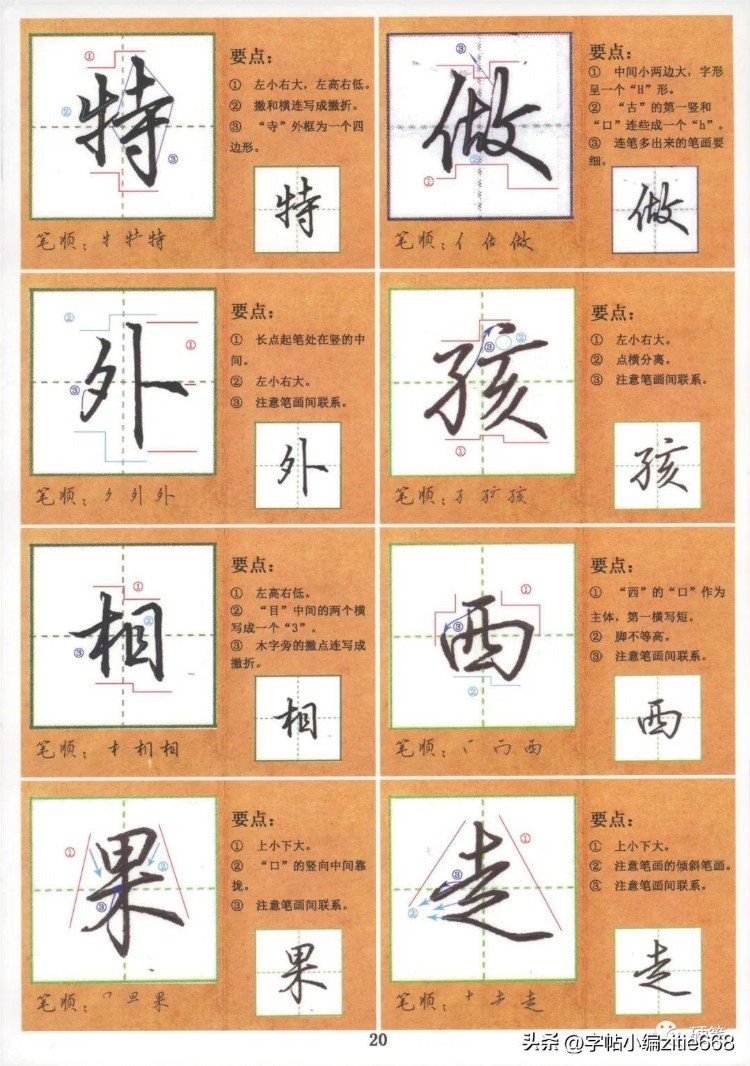 特
①
②
③
要点：
① 左小右大，左高右低。
② 撇和横连写成撇折。
③ “寺”外框为一个四
边形。
特
笔顺：牜 牪 特
做
③
②
①
要点：
① 中间小两边大，字形
呈一个“H”形。
② “古”的第一竖和
“口”连些成一个“h”。
③ 连笔多出来的笔画要
细。
做
笔顺：亻 估 做
外
②
①
③
要点：
① 长点起笔处在竖的中
间。
② 左小右大。
③ 注意笔画间联系。
外
笔顺：夕 外 外
孩
③
②
①
要点：
① 左小右大。
② 点横分离。
③ 注意笔画间联系。
孩
笔顺：孑 孩
相
①
②
③
要点：
① 左高右低。
② “目”中间的两个横
写成一个“3”。
③ 木字旁的撇点连写成
撇折。
相
笔顺：相 相
西
①
③
②
要点：
① “西”的“口”作为
主体，第一横写短。
② 脚不等高。
③ 注意笔画间联系。
西
笔顺：西
果
①
②
③
要点：
① 上小下大。
② “口”的竖向中间靠
拢。
③ 注意笔画间联系。
果
笔顺：果
走
①
③
②
要点：
① 上小下大。
② 注意笔画的倾斜笔画。
③ 注意笔画间联系。
走
笔顺：走
20
头条 @字帖小编zitie668